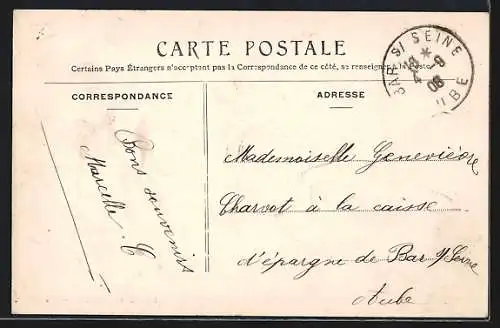 CARTE POSTALE
Certains Pays Étrangers n'acceptant pas la Correspondance de ce côté, se renseigner à la Poste
CORRESPONDANCE
ADRESSE
Bons souvenirs
Marcelle C
Mademoiselle Geneviève
Charvot à la caisse
d'épargne de Bar s/ Seine
Aube
BAR S/ SEINE
AUBE
4 - 9
08